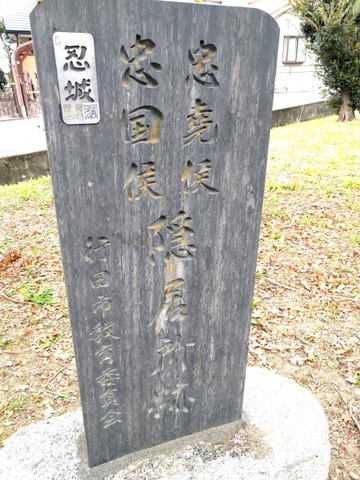 忍城
忠堯侯
忠国侯
隠居所跡
行田市教育委員会